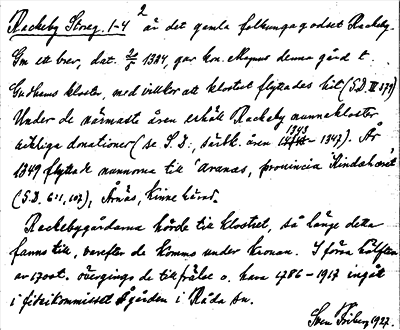 Rackeby Storag. 1-4 2 är det gamla folkungagodset Rackeby.
Gm ett brev, dat. 1304, gav kon. Magnus denna gård t.
Gudhems kloster, med villkor att klostret flyttades hit (S.D.
Under de närmaste åren erhöll Rackeby nunnekloster
rikliga donationer (se S.D., särsk. åren 1343 - 1347). År
1349 flyttade nunnorna till "Aranæs, provincia Kindæhæret"
(S.D. 6:1, 107), Årnäs, Kinne härad.
Rackebygårdarna hörde till klostret, så länge detta
fanns till, varefter de komma under kronan. I förra hälften
av 1700t. övergingo de till frälse o. hava 1786-1917 ingått
i fideikommisset gården i Råda sn.
Sven 1927.